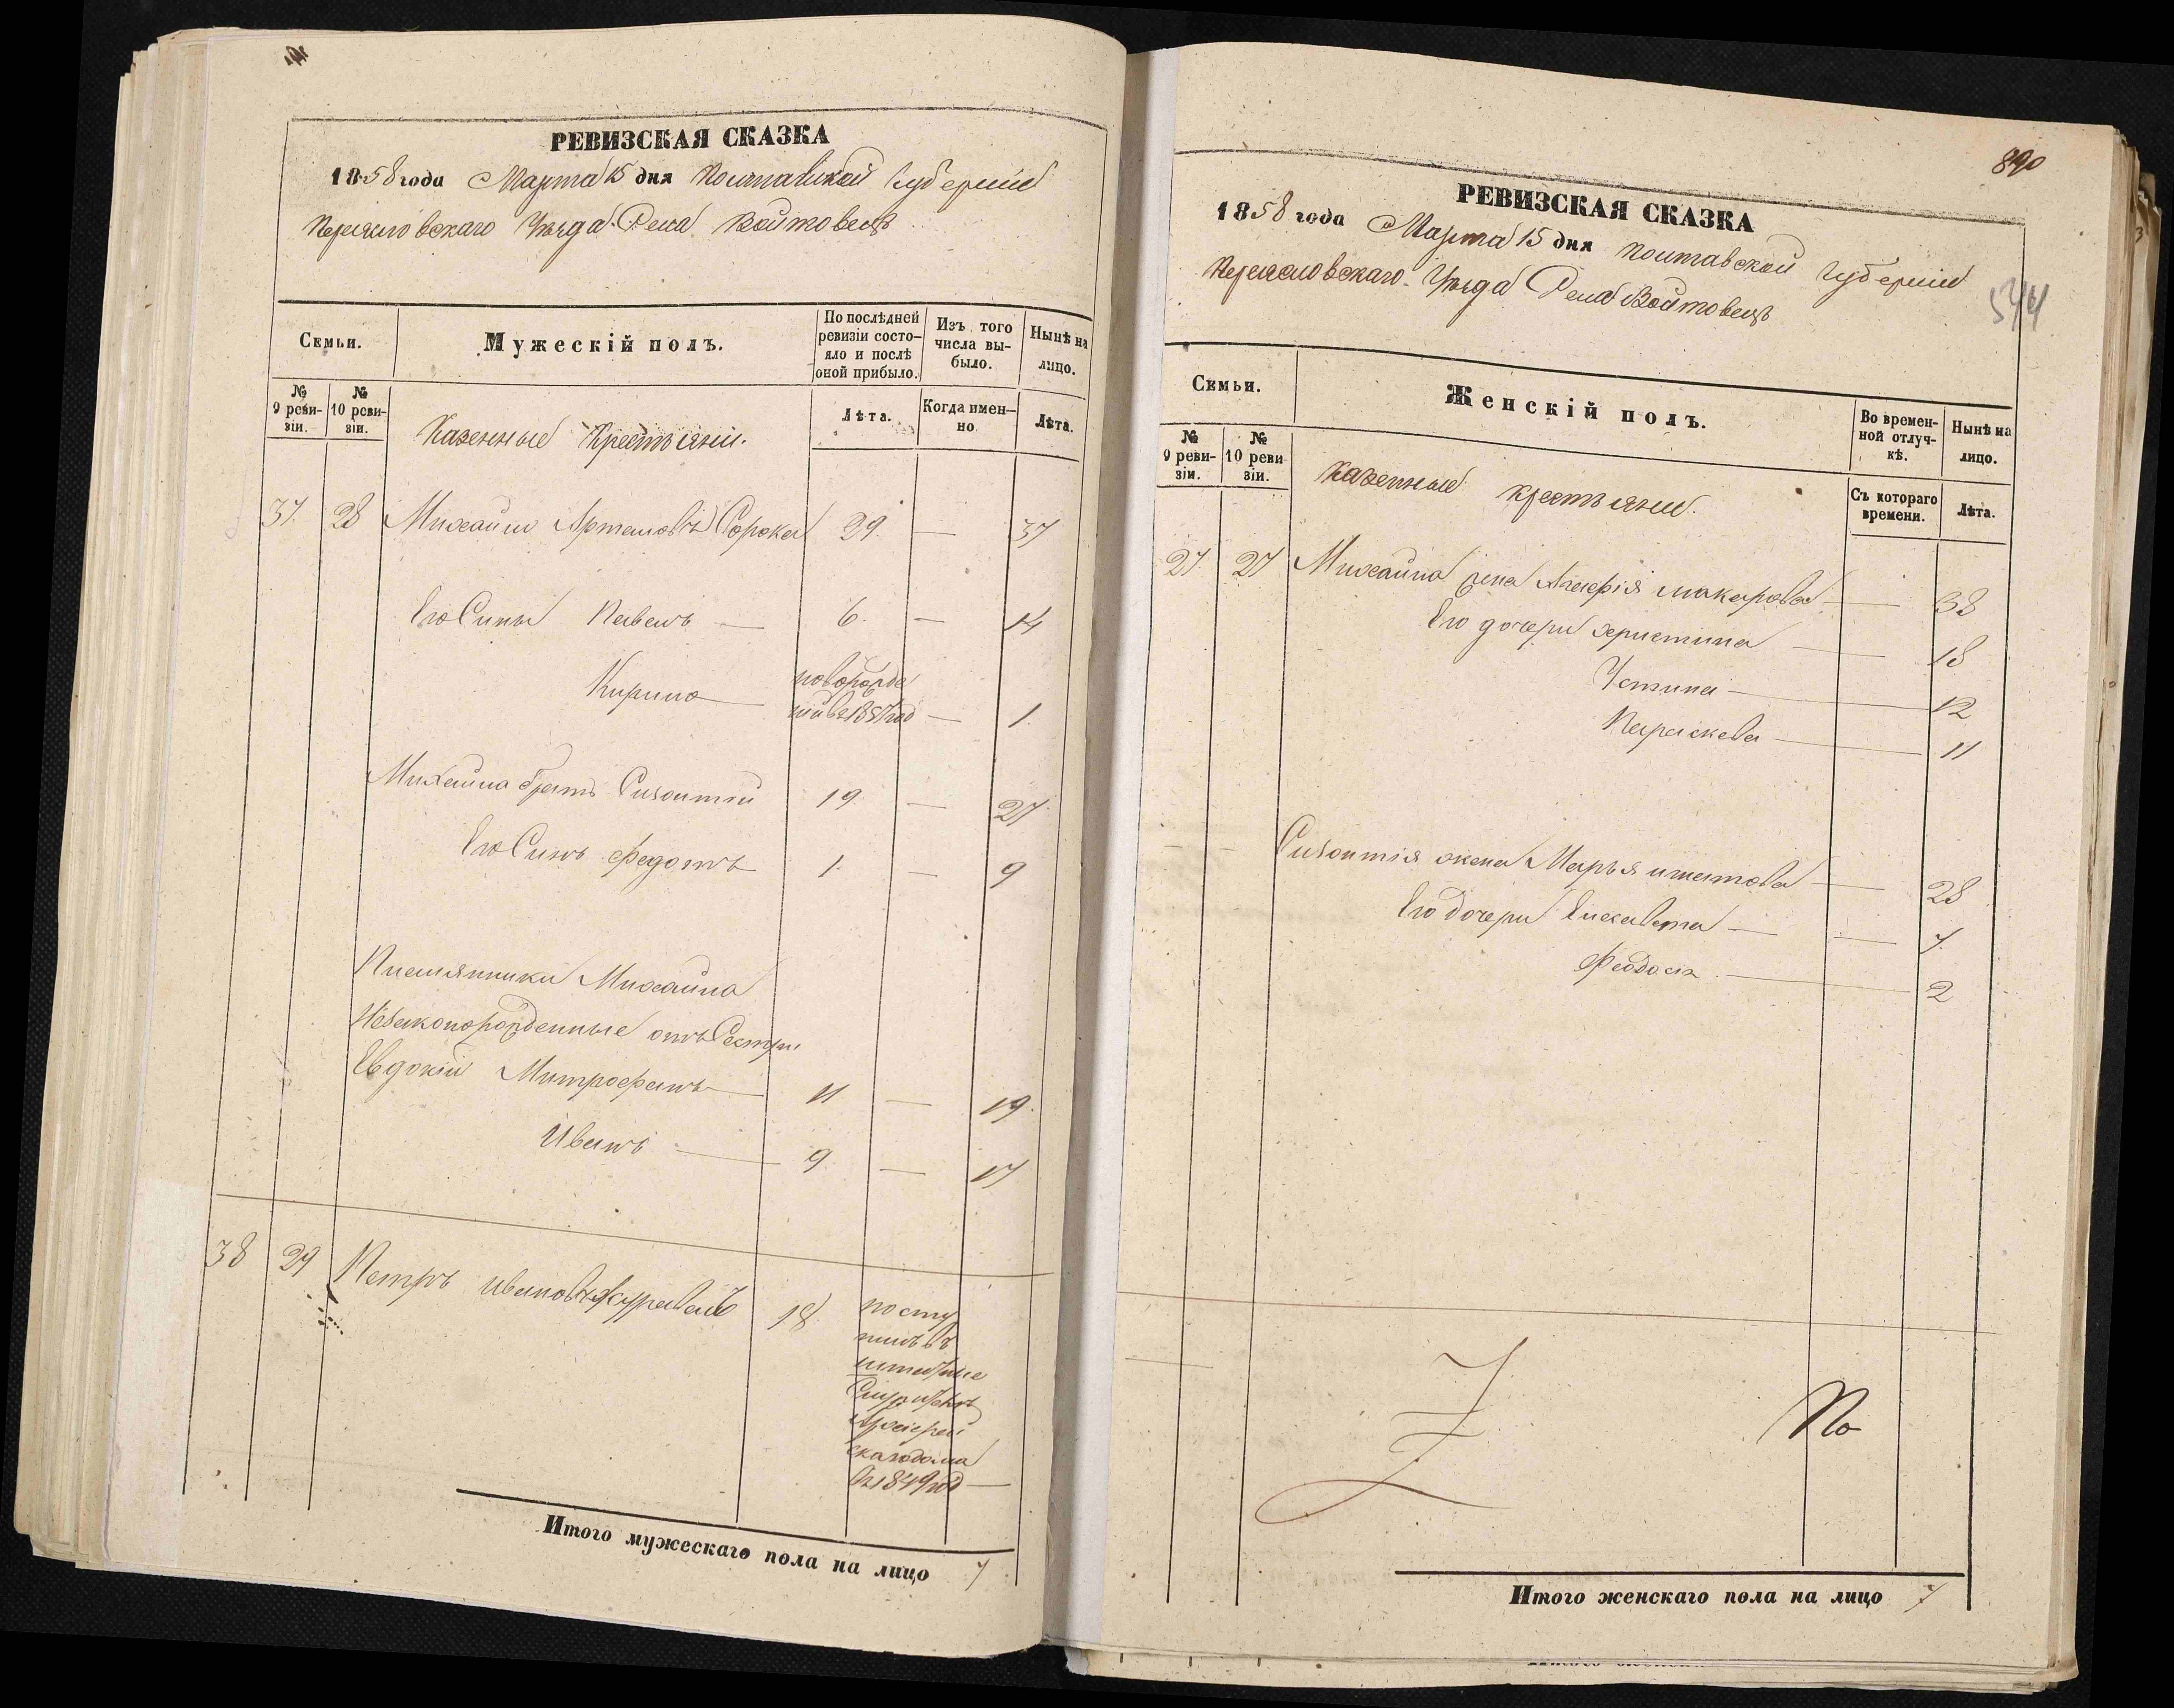 РЕВИЗСКАЯ СКАЗКА
1858 года Марта 15 дня Полтавской Губерніи
Переяславскаго Уезда Села Войтовецъ
Семьи.
Мужескій полъ.
По послѣдней ревизіи состояло и послѣ оной прибыло.
Изъ того числа выбыло.
Нынѣ на лицо.
№ 9 ревизіи.
№ 10 ревизіи.
Казенные Крестьяни.
Лѣта.
Когда именно
Лѣта.
37. 28 Михайло Артемовъ Сорока 29. — 37
Его Сины Павелъ — 6. — 14
Кирило — новорожде
1857 год — 1.
Михайла братъ Сизонтій 19. — 27.
Его Синъ Федотъ 1. — 9
Племянники Михайла
Незаконорожденные отъ Сестри
Евдокіи Митрофанъ — 11 — 19.
Иванъ — 9. — 17
38 29 Петръ Ивановъ Журавель 18. посту
пилъ въ
штатные
Служители
Архіерей
скаго дома
въ 1849 год —
Итого мужескаго пола на лицо 7
890
РЕВИЗСКАЯ СКАЗКА
1858 года Марта 15 дня Полтавской Губерніи
Переясловскаго Уезда Села Войтовецъ
544
Семьи.
Женскій полъ.
Во временной отлучкѣ.
Нынѣ на лицо.
№ 9 ревизіи.
№ 10 ревизіи.
Казенные крестьяни.
Съ котораго времени.
Лѣта.
27. 27 Михайла жена Агафія Макарова — 38
Его дочери Христина — 18
Устина — 12
Параскева — 11
Сизонтія жена Марья Игнатова — 28
Его дочери Елисавета — 7.
Феодося — 2
По
Итого женскаго пола на лицо 7